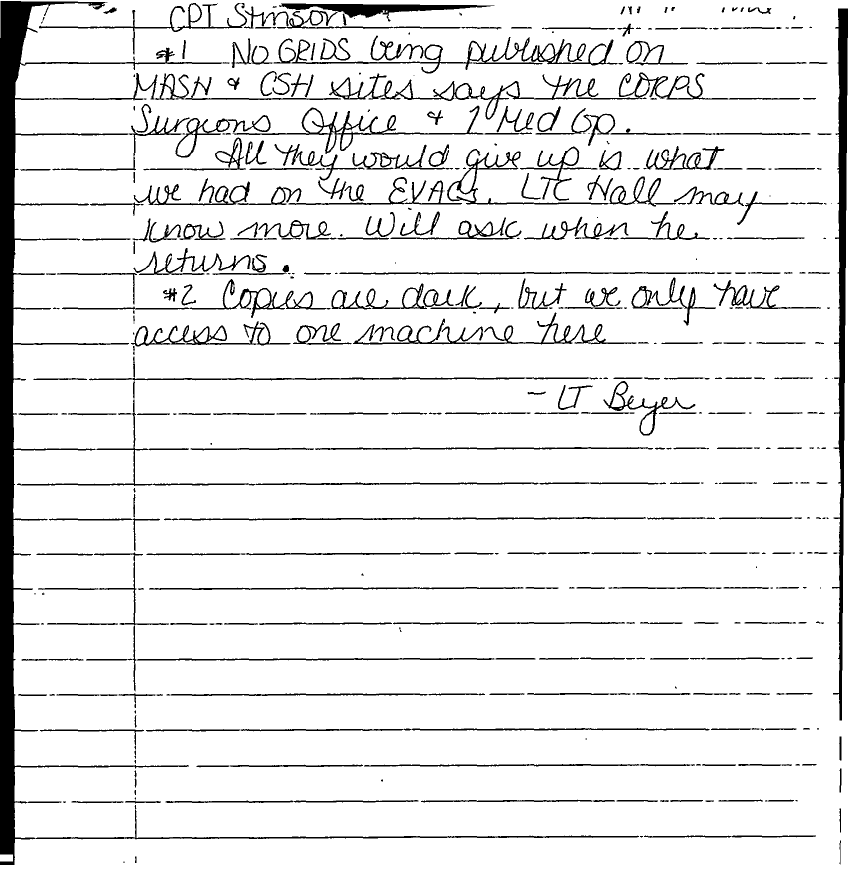 CPT Stinson
#1 NO GRIDS being published on
MASH & CSH sites says the CORPS
Surgeons Office & 1 Med Gp.
All they would give up is what
we had on the EVACs. LTC Hall may
know more. Will ask when he
returns.
#2 Copies are dark, but we only have
access to one machine here
- LT Beyer